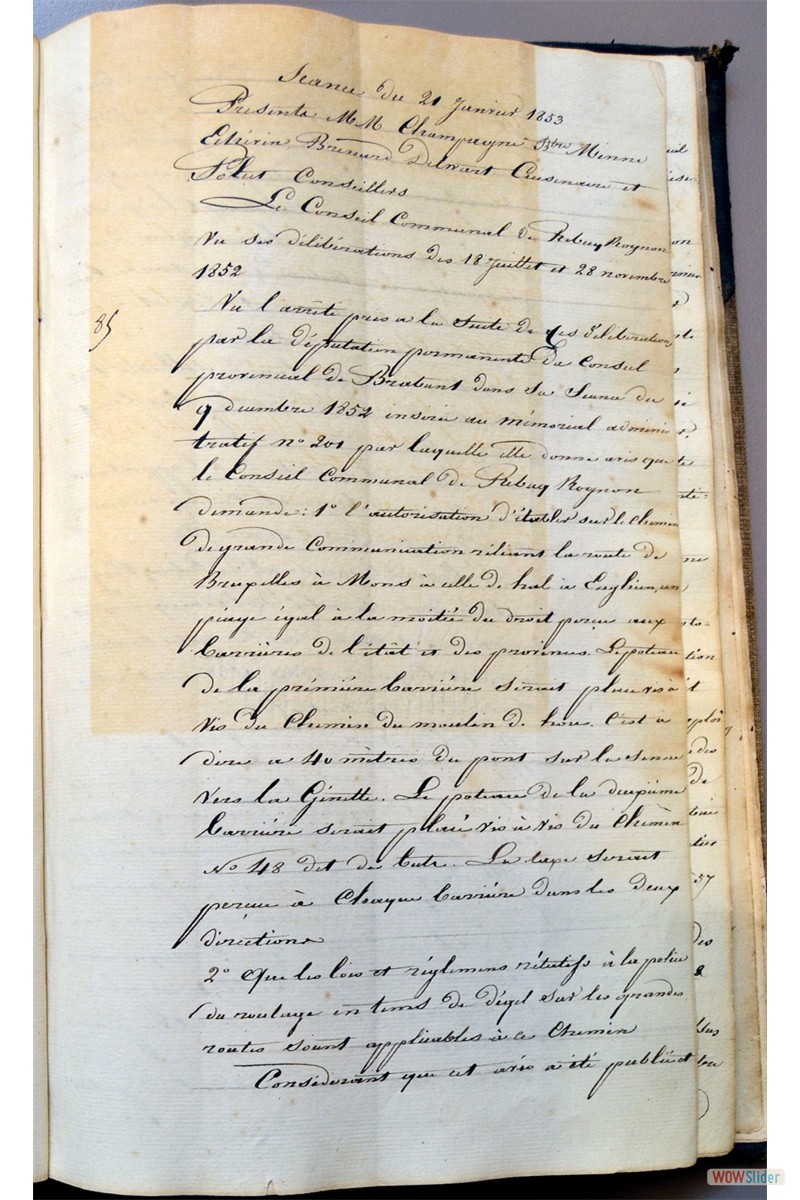 Séance du 21 Janvier 1853
Présents MM Champagne Btre Minne
Echevin Brenard Delwart Cuisenaire et
Polut Conseillers
Le Conseil Communal de Rebecq Rognon
Vu ses délibérations des 18 Juillet et 28 novembre
1852
85
Vu l'arrêté pris a la suite de ces délibérations
par la députation permanente du Conseil
provincial de Brabant dans sa séance du
9 décembre 1852 inserée au mémorial adminis
tratif n° 201 par laquelle elle donne avis que
le Conseil Communal de Rebecq Rognon
demande: 1° l'autorisation d'établir sur le chemin
de grande Communication réliant la route de
Bruxelles à Mons à celle de hal à Enghien, un
péage égal à la moitié du droit perçu aux
barrières de l'état et des provinces. Le poteau
de la première barrière serait placé vis à
vis du Chemin du moulin de hou. C'est à
dire a 40 mètres du pont sur la Senne
vers la Genette. Le poteau de la deuxième
barrière serait placé vis à vis du Chemin
N° 48 dit de . La taxe serait
perçue à Chaque barrière dans les deux
directions
2° Que les lois et réglemens rélatifs à la police
du roulage en tems de dégel sur les grandes
routes soient applicables à ce Chemin
Considérant que cet avis a été publié et
57
WOWSlider